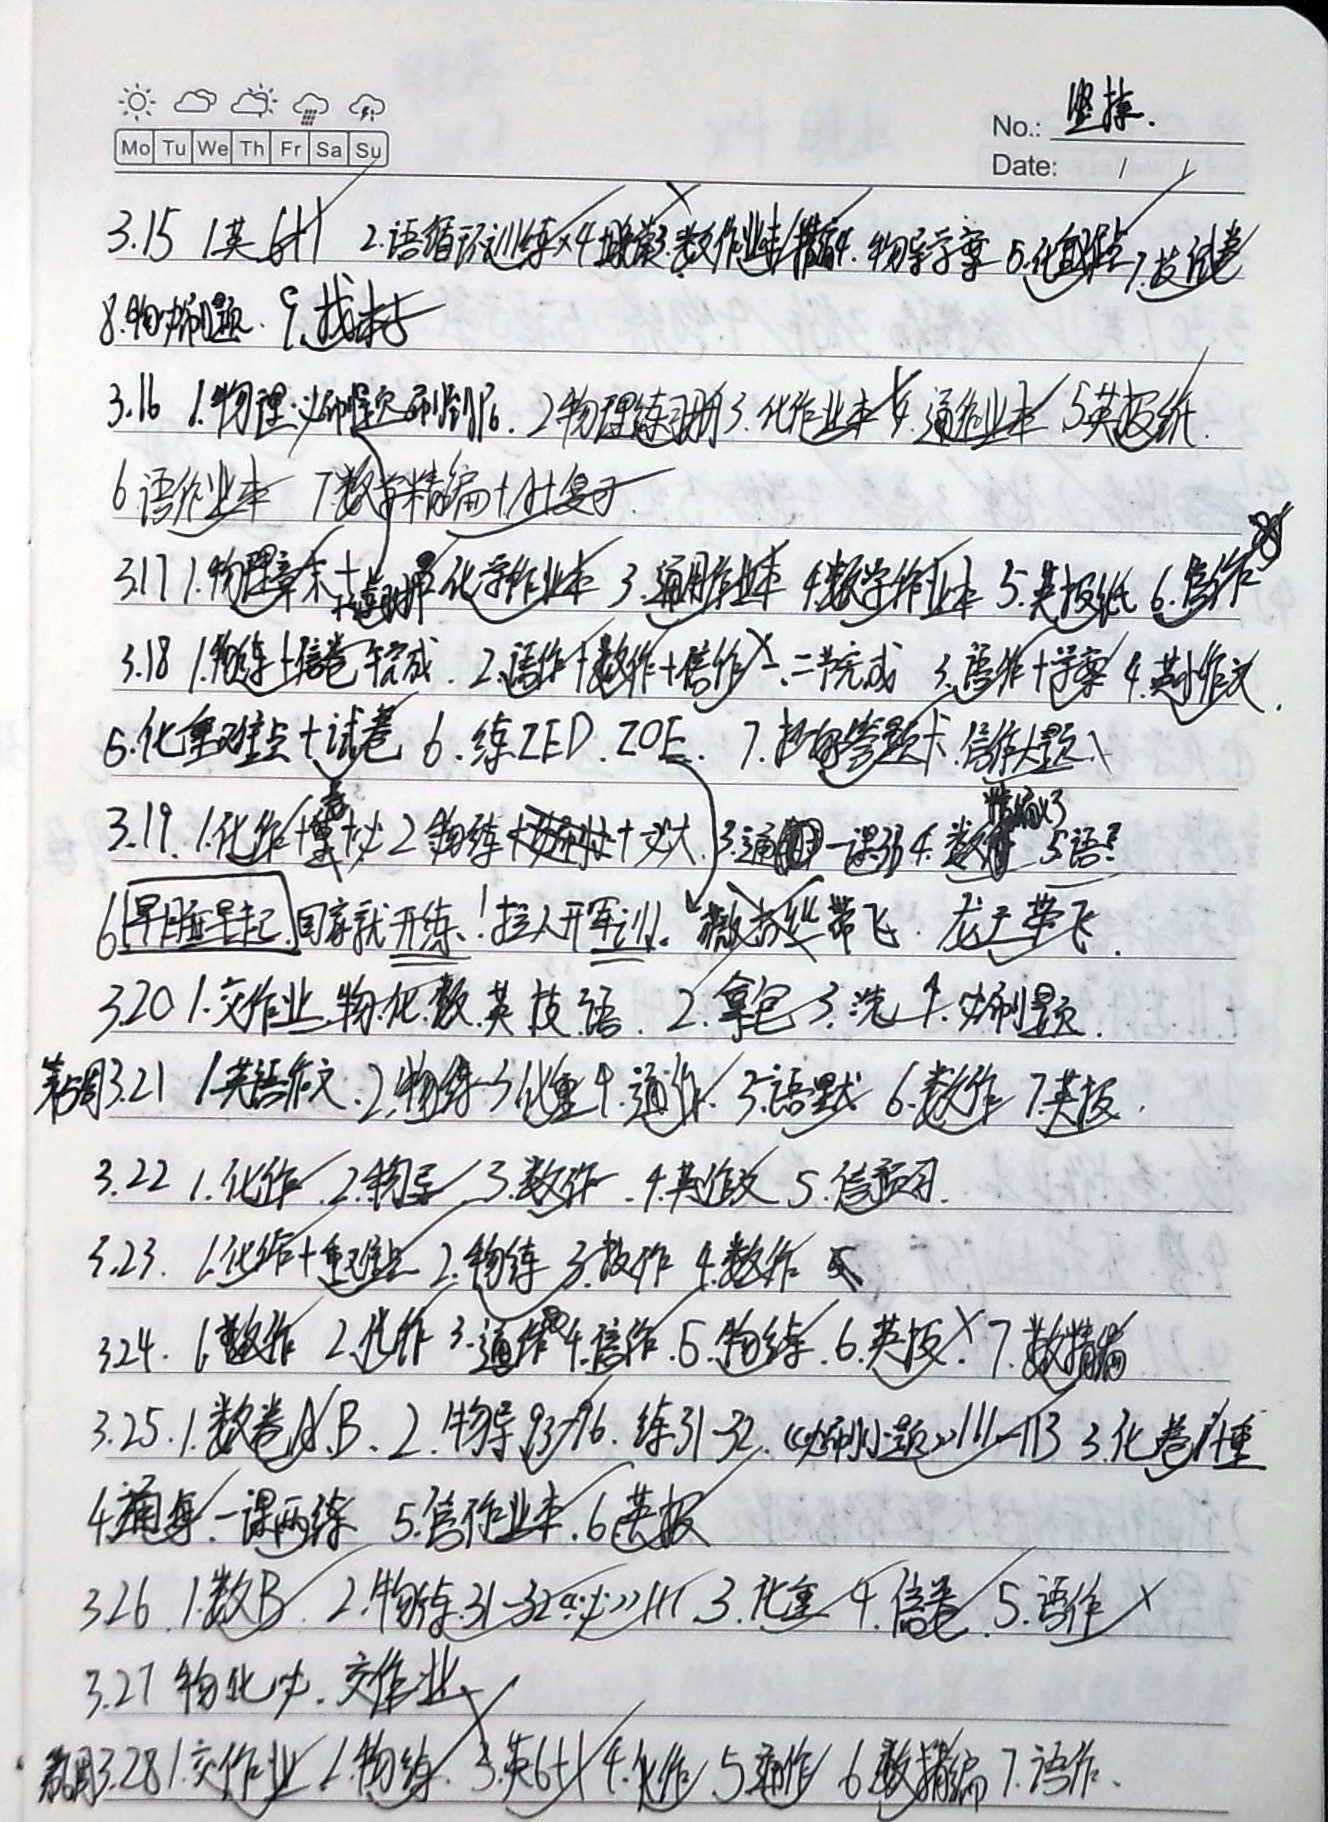 Mo Tu We Th Fr Sa Su
No.: 坚持.
Date: / /
3.15 1.英6+1 2.语循环训练×4 3.数作业本 4.物导学案 5.化重难点 7.技试卷
8.物必刷题. 9.找本子
3.16 1.物理必刷题 2.物理练习册 3.化作业本 4.通作业本 5.英报纸.
6.语作业本 7.数学精编+小复习
3.17 1.物理章末+ 化学作业本 3.通用作业本 4.数学作业本 5.英报纸 6.信作
3.18 1.物练+信卷 午完成. 2.语作+数作+信作 一、二节完成 3.语作+学案 4.英小作文.
5.化重难点+试卷 6.练ZED.ZOE. 7.答题卡.信作大题
3.19. 1.化作+重+必 2.物练+必大. 3.通 一课 4.数 精编×3 5.语
6.早睡早起.国家就开练!拉人开军训!. 带飞. 龙王带飞.
3.20 1.交作业 物.化.数.英.技.语. 2.拿包 3.洗 4.必刷题.
第5周3.21 1.英语作文. 2.物练 3.化重 4.通作. 5.语默 6.数作 7.英报.
3.22 1.化作 2.物导 3.数作. 4.英作文 5.信预习.
3.23. 1.化作+重难点 2.物练 3.技作 4.数作
3.24. 1.数作 2.化作 3.通作 4.信作. 5.物练. 6.英报. 7.数精编
3.25. 1.数卷A.B. 2.物导93-96. 练31-32.《必刷小题》111-113 3.化卷+重
4.通 一课两练 5.信作业本. 6.英报
3.26 1.数B 2.物练.31-32《必》111 3.化重 4.信卷 5.语作
3.27 物化必. 交作业
第6周3.28 1.交作业 2.物练 3.英6+1 4.化作 5.通作 6.数精编 7.语作.